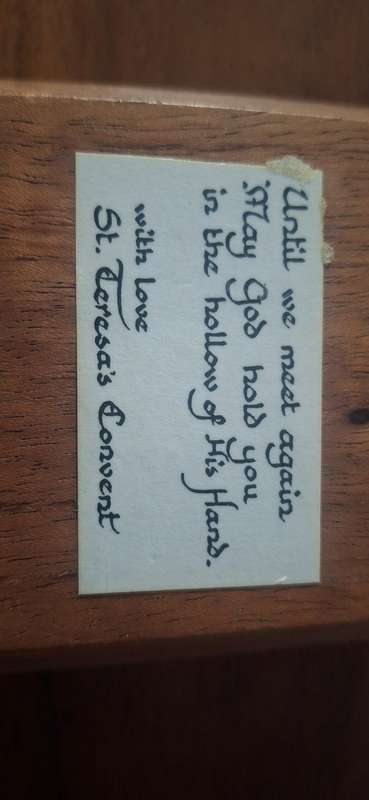 Until we meet again
May God hold you
in the hollow of His Hand.
with love
St. Teresa's Convent